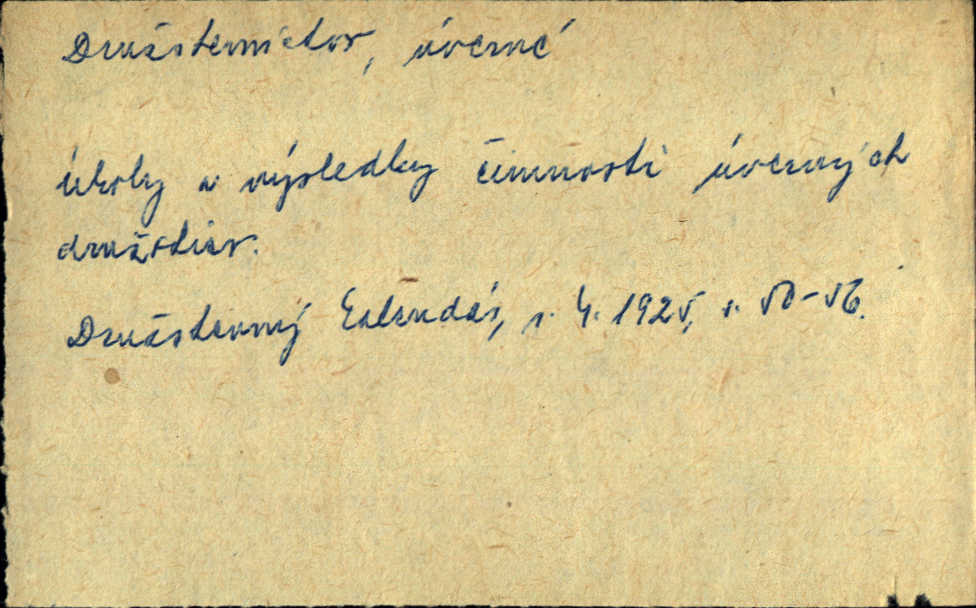 Družstevníctvo, úverné
Úkoly a výsledky činnosti úverných
družstiev.
Družstevný kalendár, r. 4. 1925, s. 50-56.